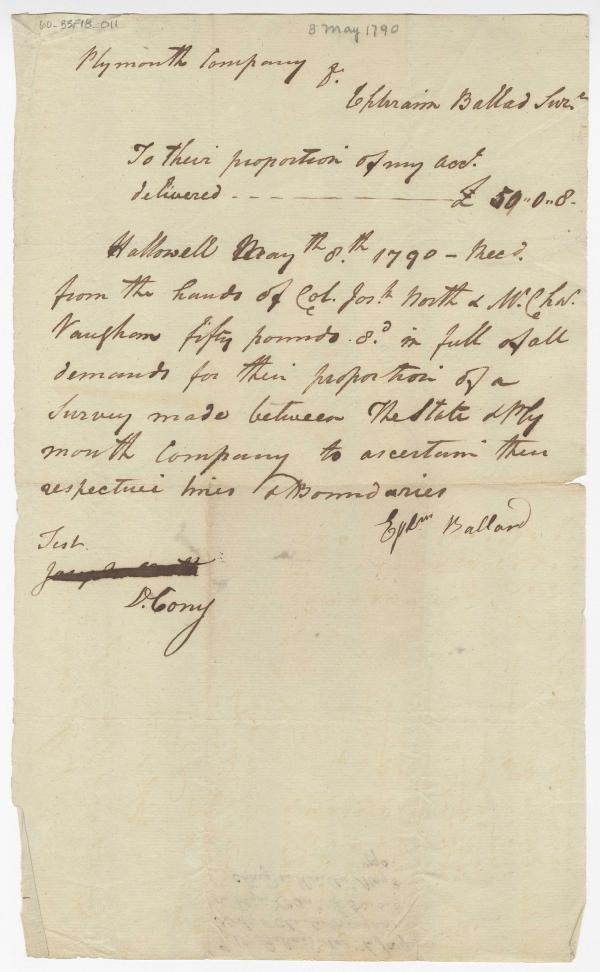 60-35F1B-011
8 May 1790
Plymouth Company Dr.
Ephraim Ballad Survr
To their proportion of my acct.
delivered - - - - £ 50,,0,,8-
Hallowell Mayth 8.th 1790 - Recd.
from the hands of Col. Josh. North & Mr. Chas.
Vaughan fifty pounds 8.d in full of all
demands for their proportion of a
Survey made between The State & Ply
mouth Company to ascertain their
respective lines & Boundaries
Ephm Ballard
Test
D. Cony